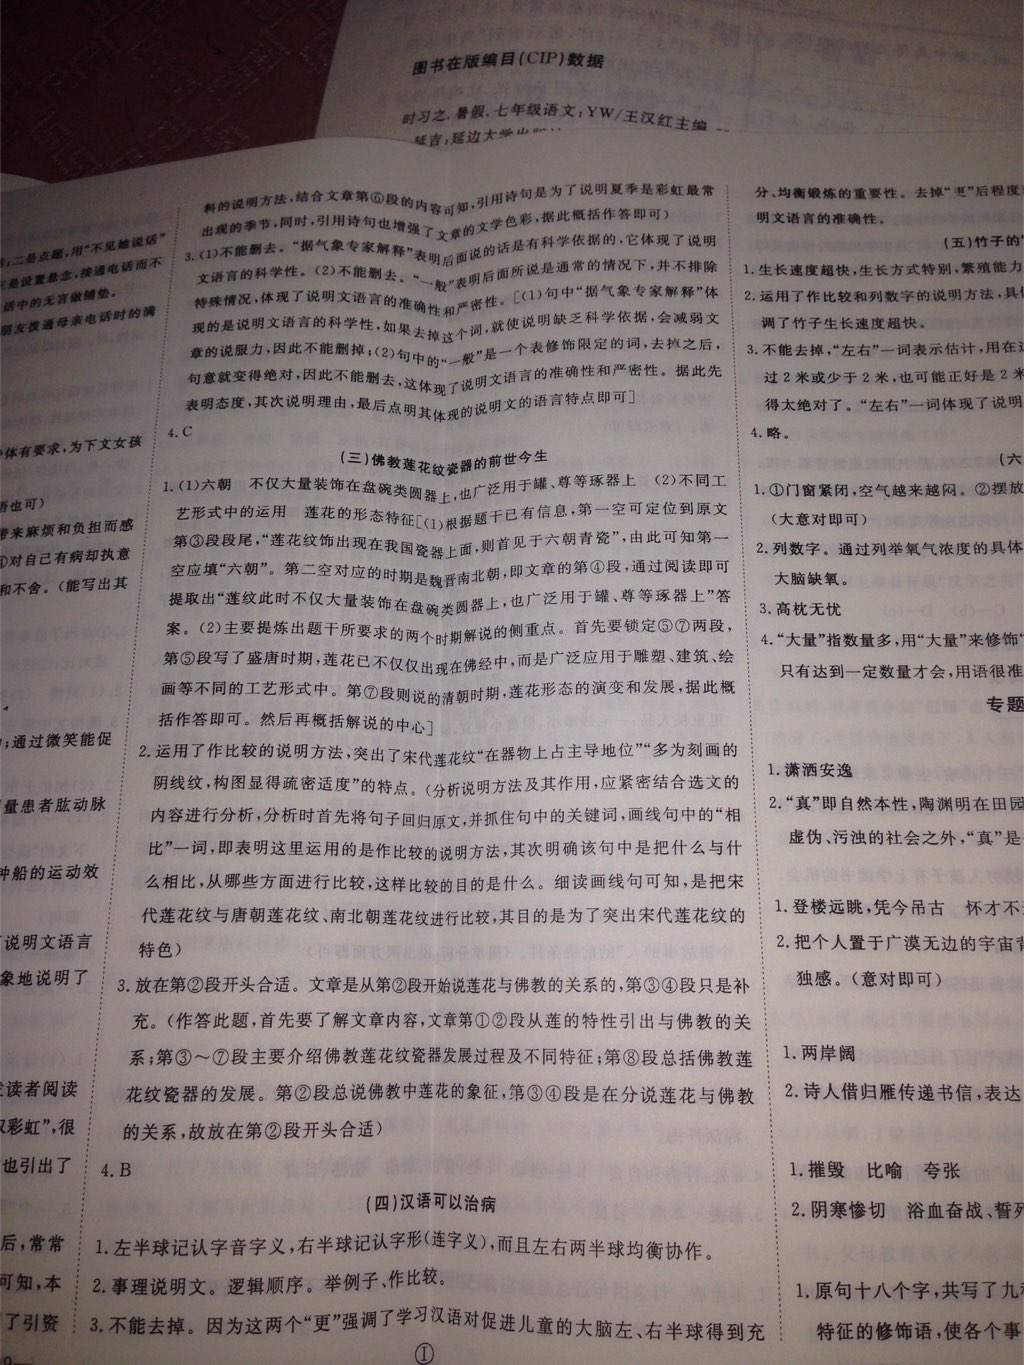 图书在版编目(CIP)数据
时习之.暑假.七年级语文:YW/王汉红主编
延吉:延边大学出版
:二是点题,用“不见她说话”
是设置悬念,接通电话而不
话中的无言做铺垫。
朋友拨通母亲电话时的满
体有要求,为下文女孩
语也可)
带来麻烦和负担而感
①对自己有病却执意
和不舍。(能写出其
;通过微笑能促
量患者肱动脉
种船的运动效
说明文语言
象地说明了
发读者阅读
双彩虹”,很
也引出了
后,常常
可知,本
了引资
料的说明方法,结合文章第⑥段的内容可知,引用诗句是为了说明夏季是彩虹最常
出现的季节,同时,引用诗句也增强了文章的文学色彩,据此概括作答即可)
3.(1)不能删去。“据气象专家解释”表明后面说的话是有科学依据的,它体现了说明
文语言的科学性。(2)不能删去。“一般”表明后面所说是通常的情况下,并不排除
特殊情况,体现了说明文语言的准确性和严密性。[(1)句中“据气象专家解释”体
现的是说明文语言的科学性,如果去掉这个词,就使说明缺乏科学依据,会减弱文
章的说服力,因此不能删掉;(2)句中的“一般”是一个表修饰限定的词,去掉之后,
句意就变得绝对,因此不能删去,这体现了说明文语言的准确性和严密性。据此先
表明态度,其次说明理由,最后点明其体现的说明文的语言特点即可]
4.C
(三)佛教莲花纹瓷器的前世今生
1.(1)六朝 不仅大量装饰在盘碗类圆器上,也广泛用于罐、尊等琢器上 (2)不同工
艺形式中的运用 莲花的形态特征[(1)根据题干已有信息,第一空可定位到原文
第③段段尾,“莲花纹饰出现在我国瓷器上面,则首见于六朝青瓷”,由此可知第一
空应填“六朝”。第二空对应的时期是魏晋南北朝,即文章的第④段,通过阅读即可
提取出“莲纹此时不仅大量装饰在盘碗类圆器上,也广泛用于罐、尊等琢器上”答
案。(2)主要提炼出题干所要求的两个时期解说的侧重点。首先要锁定⑤⑦两段,
第⑤段写了盛唐时期,莲花已不仅仅出现在佛经中,而是广泛应用于雕塑、建筑、绘
画等不同的工艺形式中。第⑦段则说的清朝时期,莲花形态的演变和发展,据此概
括作答即可。然后再概括解说的中心]
2.运用了作比较的说明方法,突出了宋代莲花纹“在器物上占主导地位”“多为刻画的
阴线纹,构图显得疏密适度”的特点。(分析说明方法及其作用,应紧密结合选文的
内容进行分析,分析时首先将句子回归原文,并抓住句中的关键词,画线句中的“相
比”一词,即表明这里运用的是作比较的说明方法,其次明确该句中是把什么与什
么相比,从哪些方面进行比较,这样比较的目的是什么。细读画线句可知,是把宋
代莲花纹与唐朝莲花纹、南北朝莲花纹进行比较,其目的是为了突出宋代莲花纹的
特色)
3.放在第②段开头合适。文章是从第②段开始说莲花与佛教的关系的,第③④段只是补
充。(作答此题,首先要了解文章内容,文章第①②段从莲的特性引出与佛教的关
系;第③～⑦段主要介绍佛教莲花纹瓷器发展过程及不同特征;第⑧段总括佛教莲
花纹瓷器的发展。第②段总说佛教中莲花的象征,第③④段是在分说莲花与佛教
的关系,故放在第②段开头合适)
4.B
(四)汉语可以治病
1.左半球记认字音字义,右半球记认字形(连字义),而且左右两半球均衡协作。
2.事理说明文。逻辑顺序。举例子、作比较。
3.不能去掉。因为这两个“更”强调了学习汉语对促进儿童的大脑左、右半球得到充
①
分、均衡锻炼的重要性。去掉“更”后程度
明文语言的准确性。
(五)竹子的
1.生长速度超快,生长方式特别,繁殖能力
2.运用了作比较和列数字的说明方法,具体
调了竹子生长速度超快。
3.不能去掉,“左右”一词表示估计,用在这
过2米或少于2米,也可能正好是2米
得太绝对了。“左右”一词体现了说明
4.略。
(六
1.①门窗紧闭,空气越来越闷。②摆放
(大意对即可)
2.列数字。通过列举氧气浓度的具体
大脑缺氧。
3.高枕无忧
4.“大量”指数量多,用“大量”来修饰“
只有达到一定数量才会,用语很准
专题
1.潇洒安逸
2.“真”即自然本性,陶渊明在田园
虚伪、污浊的社会之外,“真”是
1.登楼远眺,凭今吊古 怀才不
2.把个人置于广漠无边的宇宙背
独感。(意对即可)
1.两岸阔
2.诗人借归雁传递书信,表达
1.摧毁 比喻 夸张
2.阴寒惨切 浴血奋战、誓死
1.原句十八个字,共写了九种
特征的修饰语,使各个事